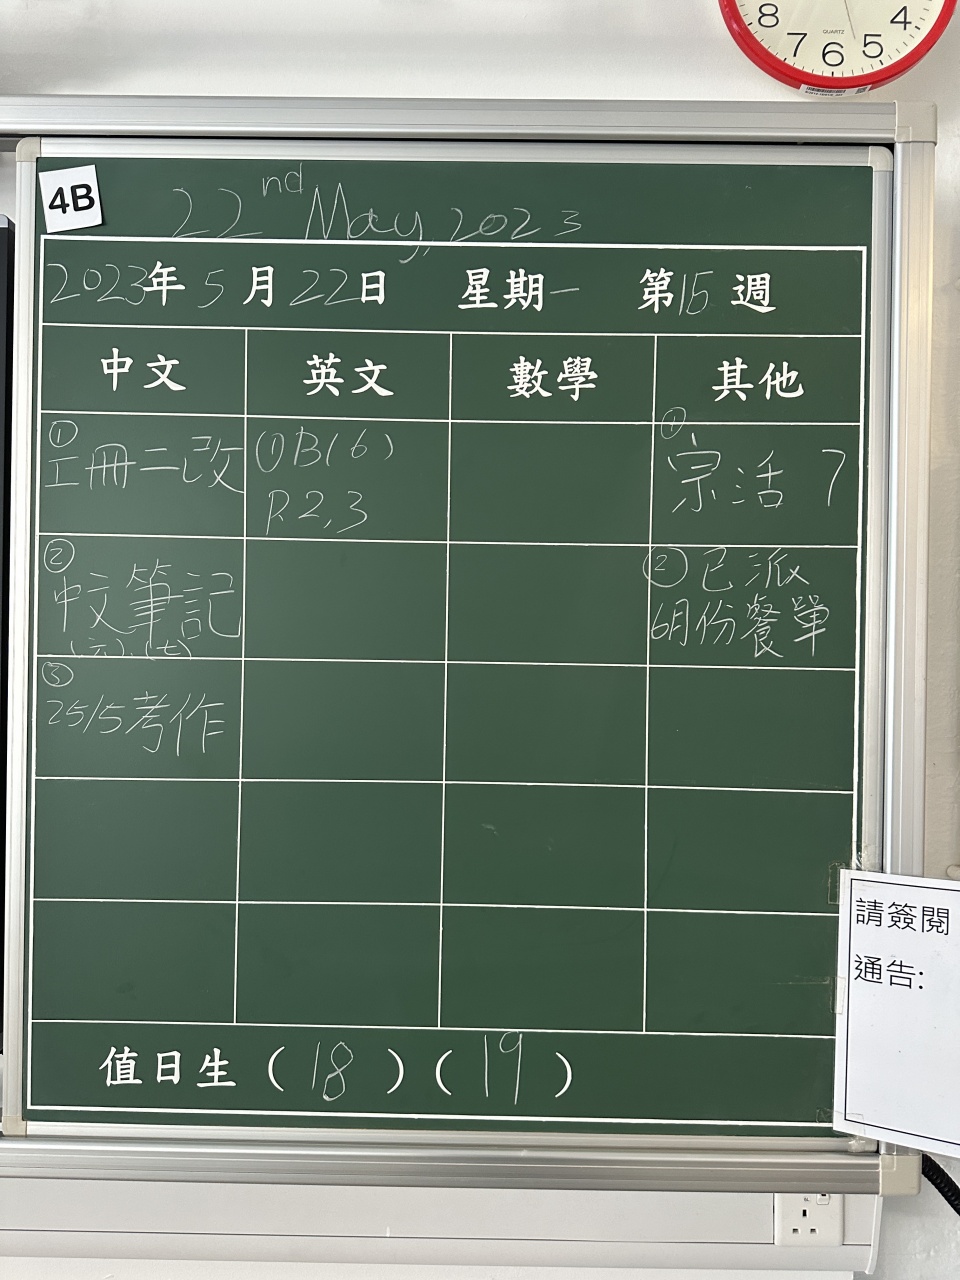 8 7 6 5 4
QUARTZ
4B
22nd May, 2023
2023年5月22日 星期一 第15週
中文 英文 數學 其他
①
工冊二改
(1) B(6)
P.2,3
①
宗活 7
②
中文筆記
(六).(七)
② 已派
6月份餐單
③
25/5考作
請簽閱
通告:
值日生 (18) (19)